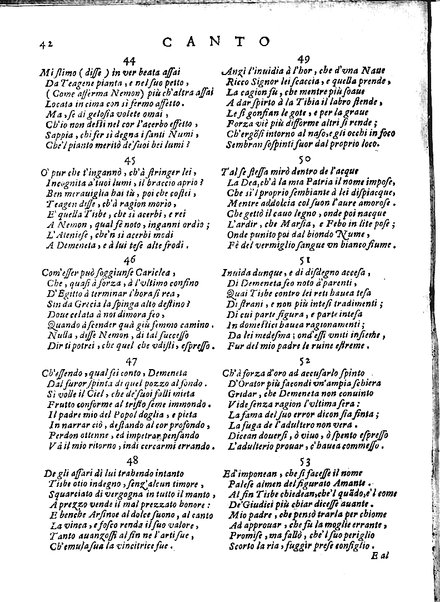 42
CANTO
44
Mi stimo (disse) in ver beata assai
Da Teagene pianta, e nel suo petto,
(Come afferma Nemon) più ch'altra assai
Locata in cima con sì fermo affetto.
Ma, se di gelosia volete omai
Ch'io non desti nel cor l'acerbo effetto,
Sappia, chi fer sì degna i santi Numi,
Che'l pianto meritò de' suoi bei lumi?
45
O' pur che t'ingannò, ch'à stringer lei,
Incognita à tuoi lumi, il braccio aprio?
Ben meraviglia hai tù, poi che costei,
Teagen disse, ch'à ragion morio,
E' quella Tisbe, che sì acerbi, e rei
A Nemon, qual fè noto, inganni ordio;
L'Ateniese, che'n sì acerbi modi
A Demeneta, e à lui tese alte frodi.
46
Com'esser può soggiunse Cariclea,
Che, quasi à forza, à l'ultimo confino
D'Egitto à terminar l'hora sì rea,
Sin da Grecia la spinga alto destino?
Doue celata à noi dimora fea,
Quando à scender quà giù femmo camino.
Nulla, disse Nemon, di tal successo
Dir ti potrei, che quel che vdisti, espresso.
47
Ch'essendo, qual sei conto, Demeneta
Dal furor spinta di quel pozzo al fondo.
Si volse il Ciel, che de' suoi falli mieta
Frutto conforme al triste seme immondo.
Il padre mio del Popol doglia, e pieta
In narrar ciò, destando al cor profondo,
Perdon ottenne, ed impetrar pensando
Và il mio ritorno, indi cercarmi errando.
48
De gli affari di lui trabendo intanto
Tisbe otio indegno, senz'alcun timore,
Squarciato di vergogna in tutto il manto,
A prezzo vende il mal prezzato honore:
E benche Arsinoe al dolce suono, al canto
La vinca, e fosco renda il suo valore,
Tanto auanzossi al fin ne l'arti sue,
Ch'emula sua la vincitrice fue.
49
Anzi l'inuidia à l'hor, che d'vna Naue
Ricco Signor lei scaccia, e quella prende,
La cagion fù, che mentre più soaue
A dar spirto à la Tibia il labro stende,
Le si gonfian le gote, e per la graue
Forza vie più difforme altri si rende;
Ch'ergōsi intorno al naso, e gli occhi in foco
Sembran sospinti fuor dal proprio loco.
50
Tal se stessa mirò dentro de l'acque
La Dea, ch'à la mia Patria il nome impose,
Che sì'l proprio sembiante à lei dispiacque,
Mentre addolcia col suon l'aure amorose.
Che gettò il cauo legno, onde poi nacque
L'ardir, che Marsia, e Febo in lite pose;
Onde punito poi dal biondo Nume,
Fè del vermiglio sangue vn bianco fiume.
51
Inuida dunque, e di disdegno accesa,
Di Demeneta feo noto à parenti,
Quai Tisbe contro lei reti hauea tesa
Di strani, e non più intesi tradimenti;
Di cui parte figura, e parte intesa
In domestici hauea ragionamenti;
Da lei medesma; ond'essi vniti insieme,
Fur del mio padre le ruine estreme.
52
Ch'à forza d'oro ad accusarlo spinto
D'Orator più facondi vn'ampia schiera
Gridar, che Demeneta non conuinto
Vide senza ragion l'ultima sera:
La fama del suo error dicon sia finta;
La fuga de l'adultero non vera.
Dicean douersi, ò viuo, ò spento espresso
L'adulterio prouar, c'hauea commesso.
53
Ed imponean, che si facesse il nome
Palese almen del figurato Amante.
Al fin Tisbe chiedean, che'l quādo, e'l come
De' Giudici più chiar dicesse auante.
Mio padre, che pensò trarla per chiome
Ad approuar, che fù la moglie errante,
Promise, ma fallò, che'l suo periglio
Scorto la ria, fuggir prese consiglio.
E al